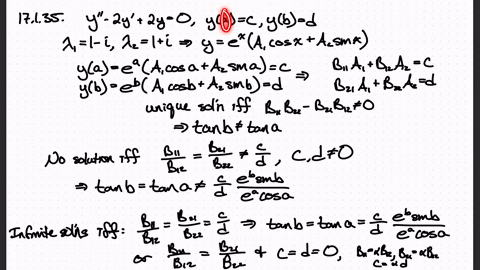 17.1.35. y''-2y'+2y=0, y(a)=c, y(b)=d
λ₁=1-i, λ₂=1+i ⇒ y=eˣ(A₁cosx+A₂sinx)
y(a)=eᵃ(A₁cosa+A₂sina)=c ⇒ B₁₁A₁+B₁₂A₂=c
y(b)=eᵇ(A₁cosb+A₂sinb)=d B₂₁A₁+B₂₂A₂=d
unique sol'n iff B₁₁B₂₂-B₂₁B₁₂≠0
⇒ tanb≠tana
No solution iff B₁₁/B₁₂ = B₂₁/B₂₂ ≠ c/d, c,d≠0
⇒ tanb=tana≠ c/d eᵇsinb/eᵃcosa
Infinite solns iff: B₁₁/B₁₂ = B₂₁/B₂₂ = c/d ⇒ tanb=tana= c/d eᵇsinb/eᵃcosa
or B₁₁/B₁₂ = B₂₁/B₂₂ & c=d=0,